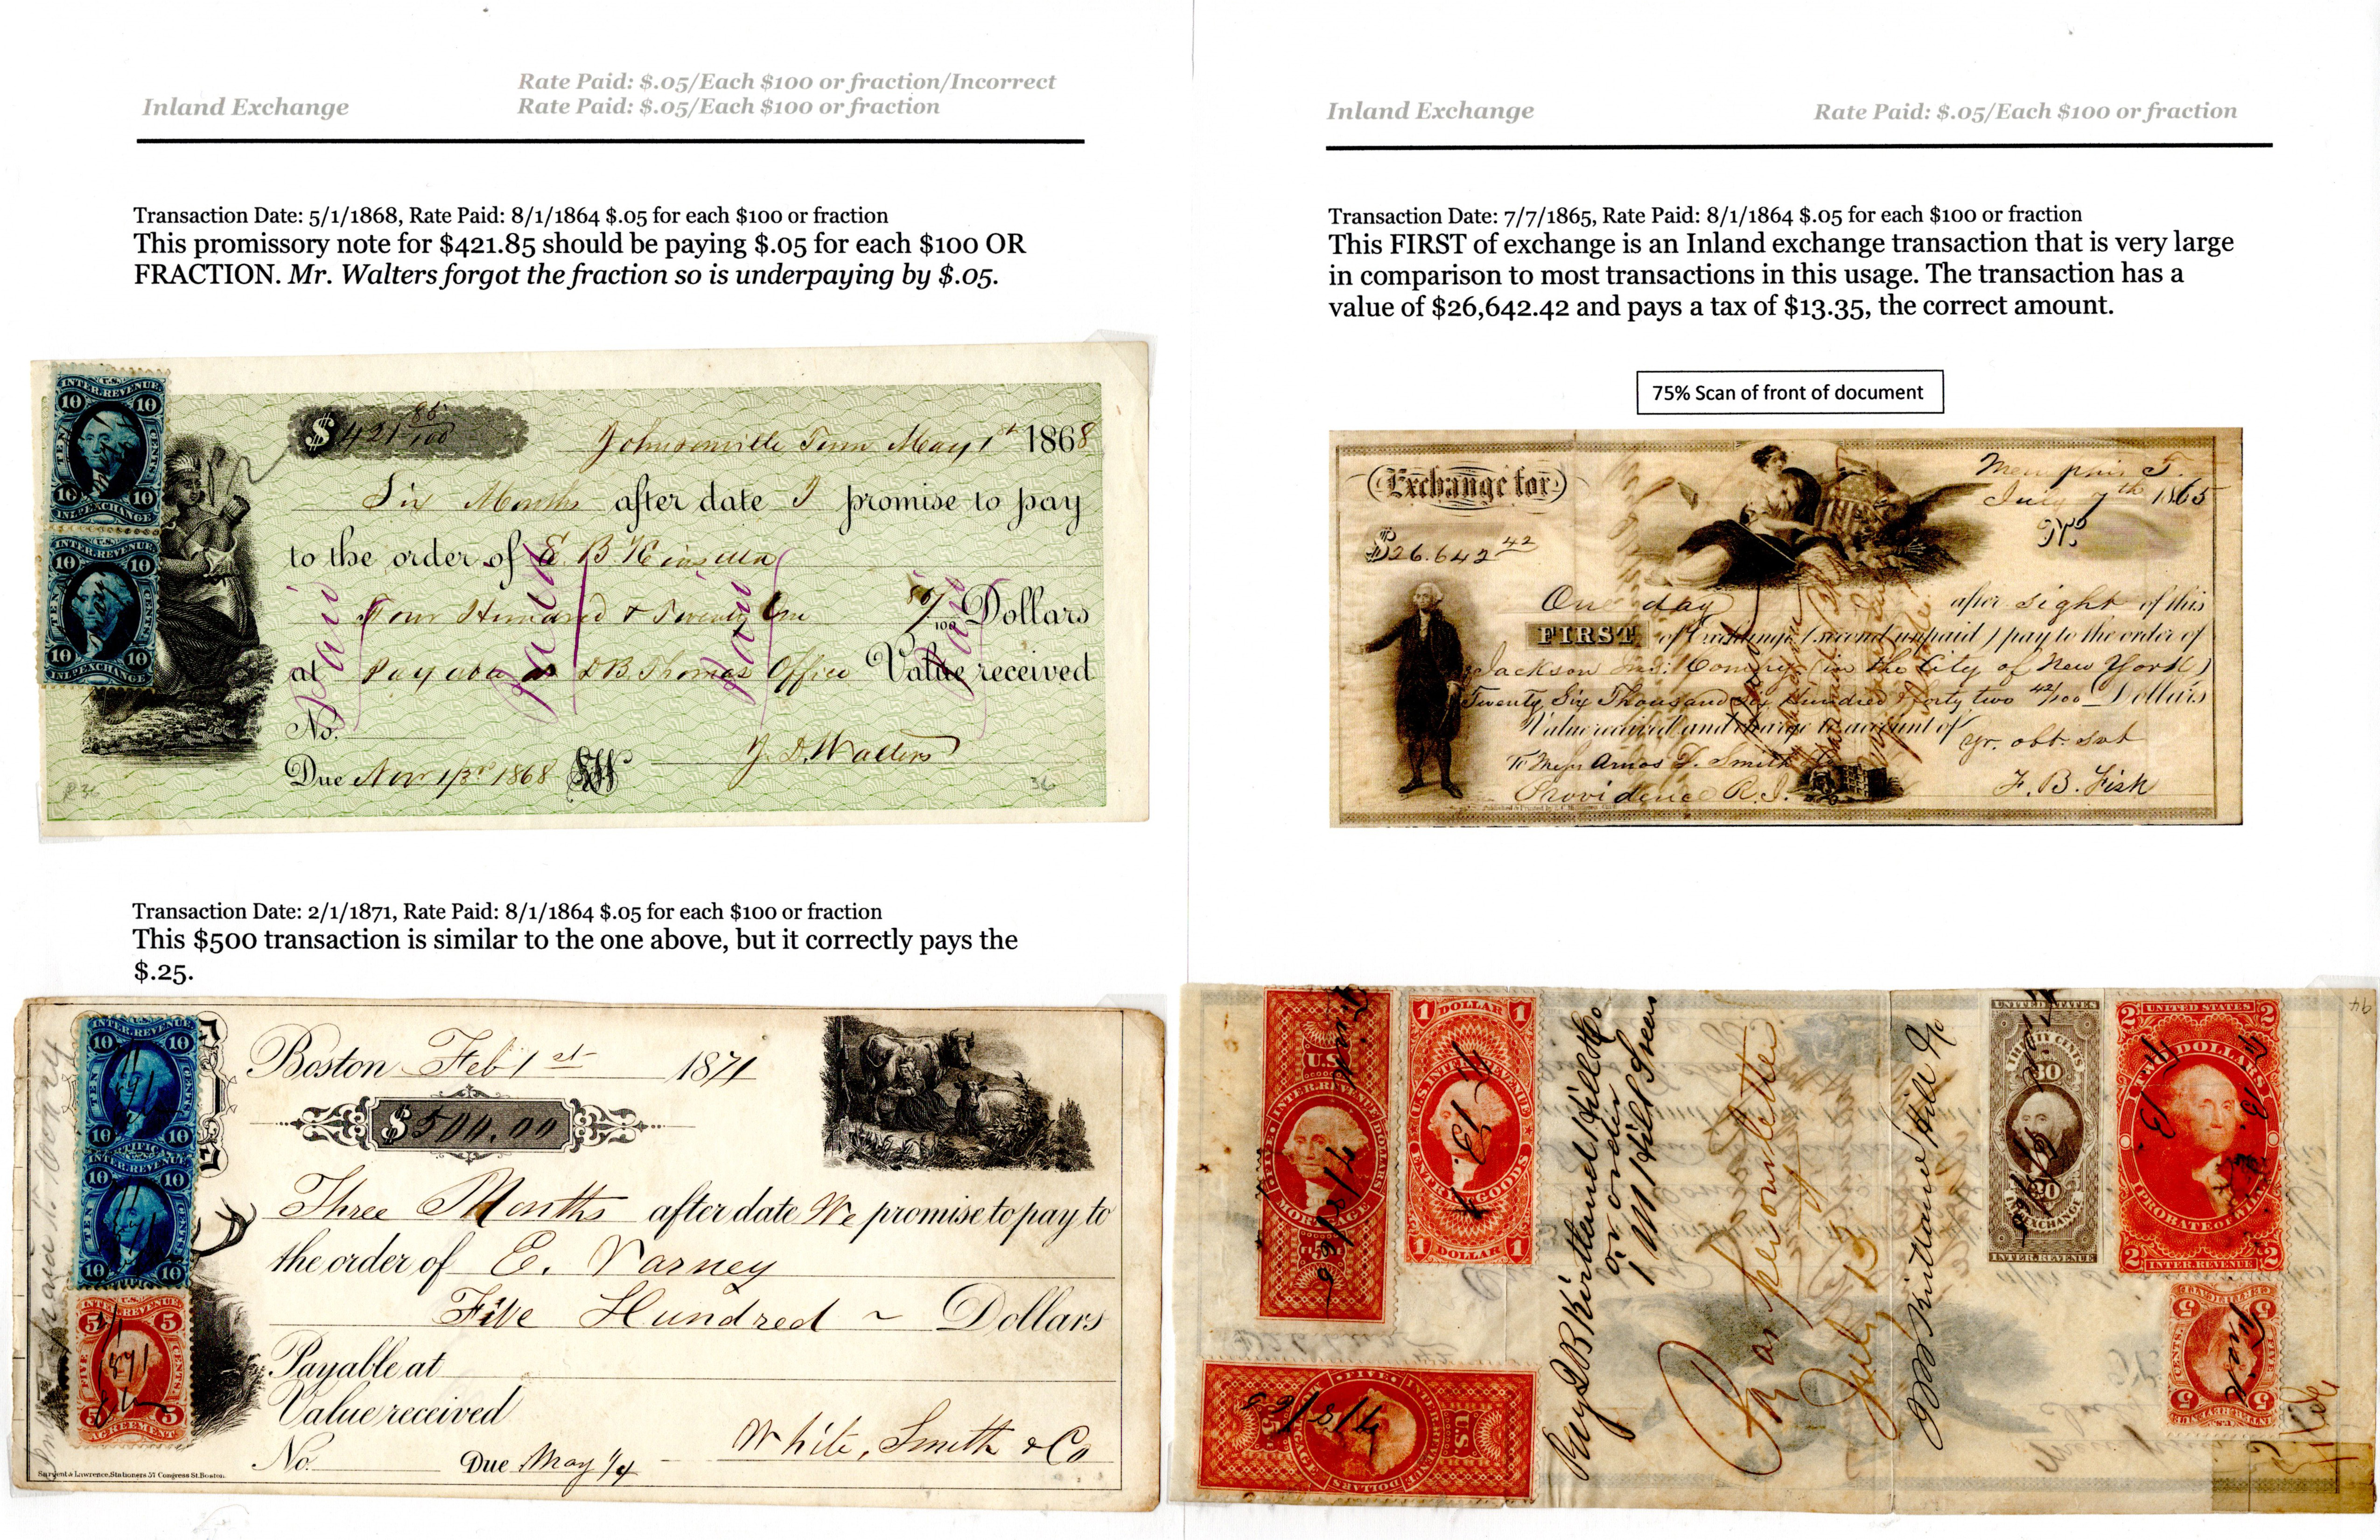 Rate Paid: $.05/Each $100 or fraction/Incorrect
Inland Exchange
Rate Paid: $.05/Each $100 or fraction
Transaction Date: 5/1/1868, Rate Paid: 8/1/1864 $.05 for each $100 or fraction
This promissory note for $421.85 should be paying $.05 for each $100 OR
FRACTION. Mr. Walters forgot the fraction so is underpaying by $.05.
U.S.
INTER.REVENUE
10 10
TEN CENTS
10 10
INL.EXCHANGE
U.S.
INTER.REVENUE
10 10
TEN CENTS
10 10
INL.EXCHANGE
$ 421 85/100
Johnsonville Tenn May 1st 1868
Six Months after date I promise to pay
to the order of E. B.
Four Hundred & Twenty One 85/100 Dollars
at Payable at D B Thomas Office Value received
Paid Paid Paid Paid
No.
J. D. Walters
Due Nov 1/3rd 1868
R36
36
Transaction Date: 2/1/1871, Rate Paid: 8/1/1864 $.05 for each $100 or fraction
This $500 transaction is similar to the one above, but it correctly pays the
$.25.
INTER.REVENUE
10 10
TEN CENTS
10 10
INTER.REVENUE
10 10
TEN CENTS
10 10
U.S.
INTER.REVENUE
5 5
FIVE CENTS
1871
5 5
AGREEMENT
Boston Feb 1st 1871
$500.00
Three Months after date We promise to pay to
the order of E. Varney
Five Hundred ~ Dollars
Payable at
Value received
White, Smith & Co
No. Due May 1/4
Sargent & Lawrence, Stationers 57 Congress St. Boston.
Inland Exchange
Rate Paid: $.05/Each $100 or fraction
Transaction Date: 7/7/1865, Rate Paid: 8/1/1864 $.05 for each $100 or fraction
This FIRST of exchange is an Inland exchange transaction that is very large
in comparison to most transactions in this usage. The transaction has a
value of $26,642.42 and pays a tax of $13.35, the correct amount.
75% Scan of front of document
Exchange for
Memphis T.
July 7th 1865
$26.642 42
One day after sight of this
FIRST of Exchange (second unpaid) pay to the order of
Jackson (in the City of New York)
Twenty Six Thousand Six Hundred & forty two 42/100 Dollars
Value received and charge to account of
yr. obt. svt
To Messrs Amos D. Smith
Providence R.I.
F. B. Fisk
U.S.
INTER.REVENUE
FIVE DOLLARS
MORTGAGE
1 DOLLAR 1
U.S. INTER. REVENUE
ENTRY OF GOODS
1 DOLLAR 1
FIVE DOLLARS
INTER.REVENUE
U.S.
MORTGAGE
Pay
or order
Pay
July 13
UNITED STATES
30
30
EXCHANGE
INTER.REVENUE
2 UNITED STATES 2
TWO DOLLARS
PROBATE OF WILL
2 INTER.REVENUE 2
5 5
FIVE CENTS
5 5
94